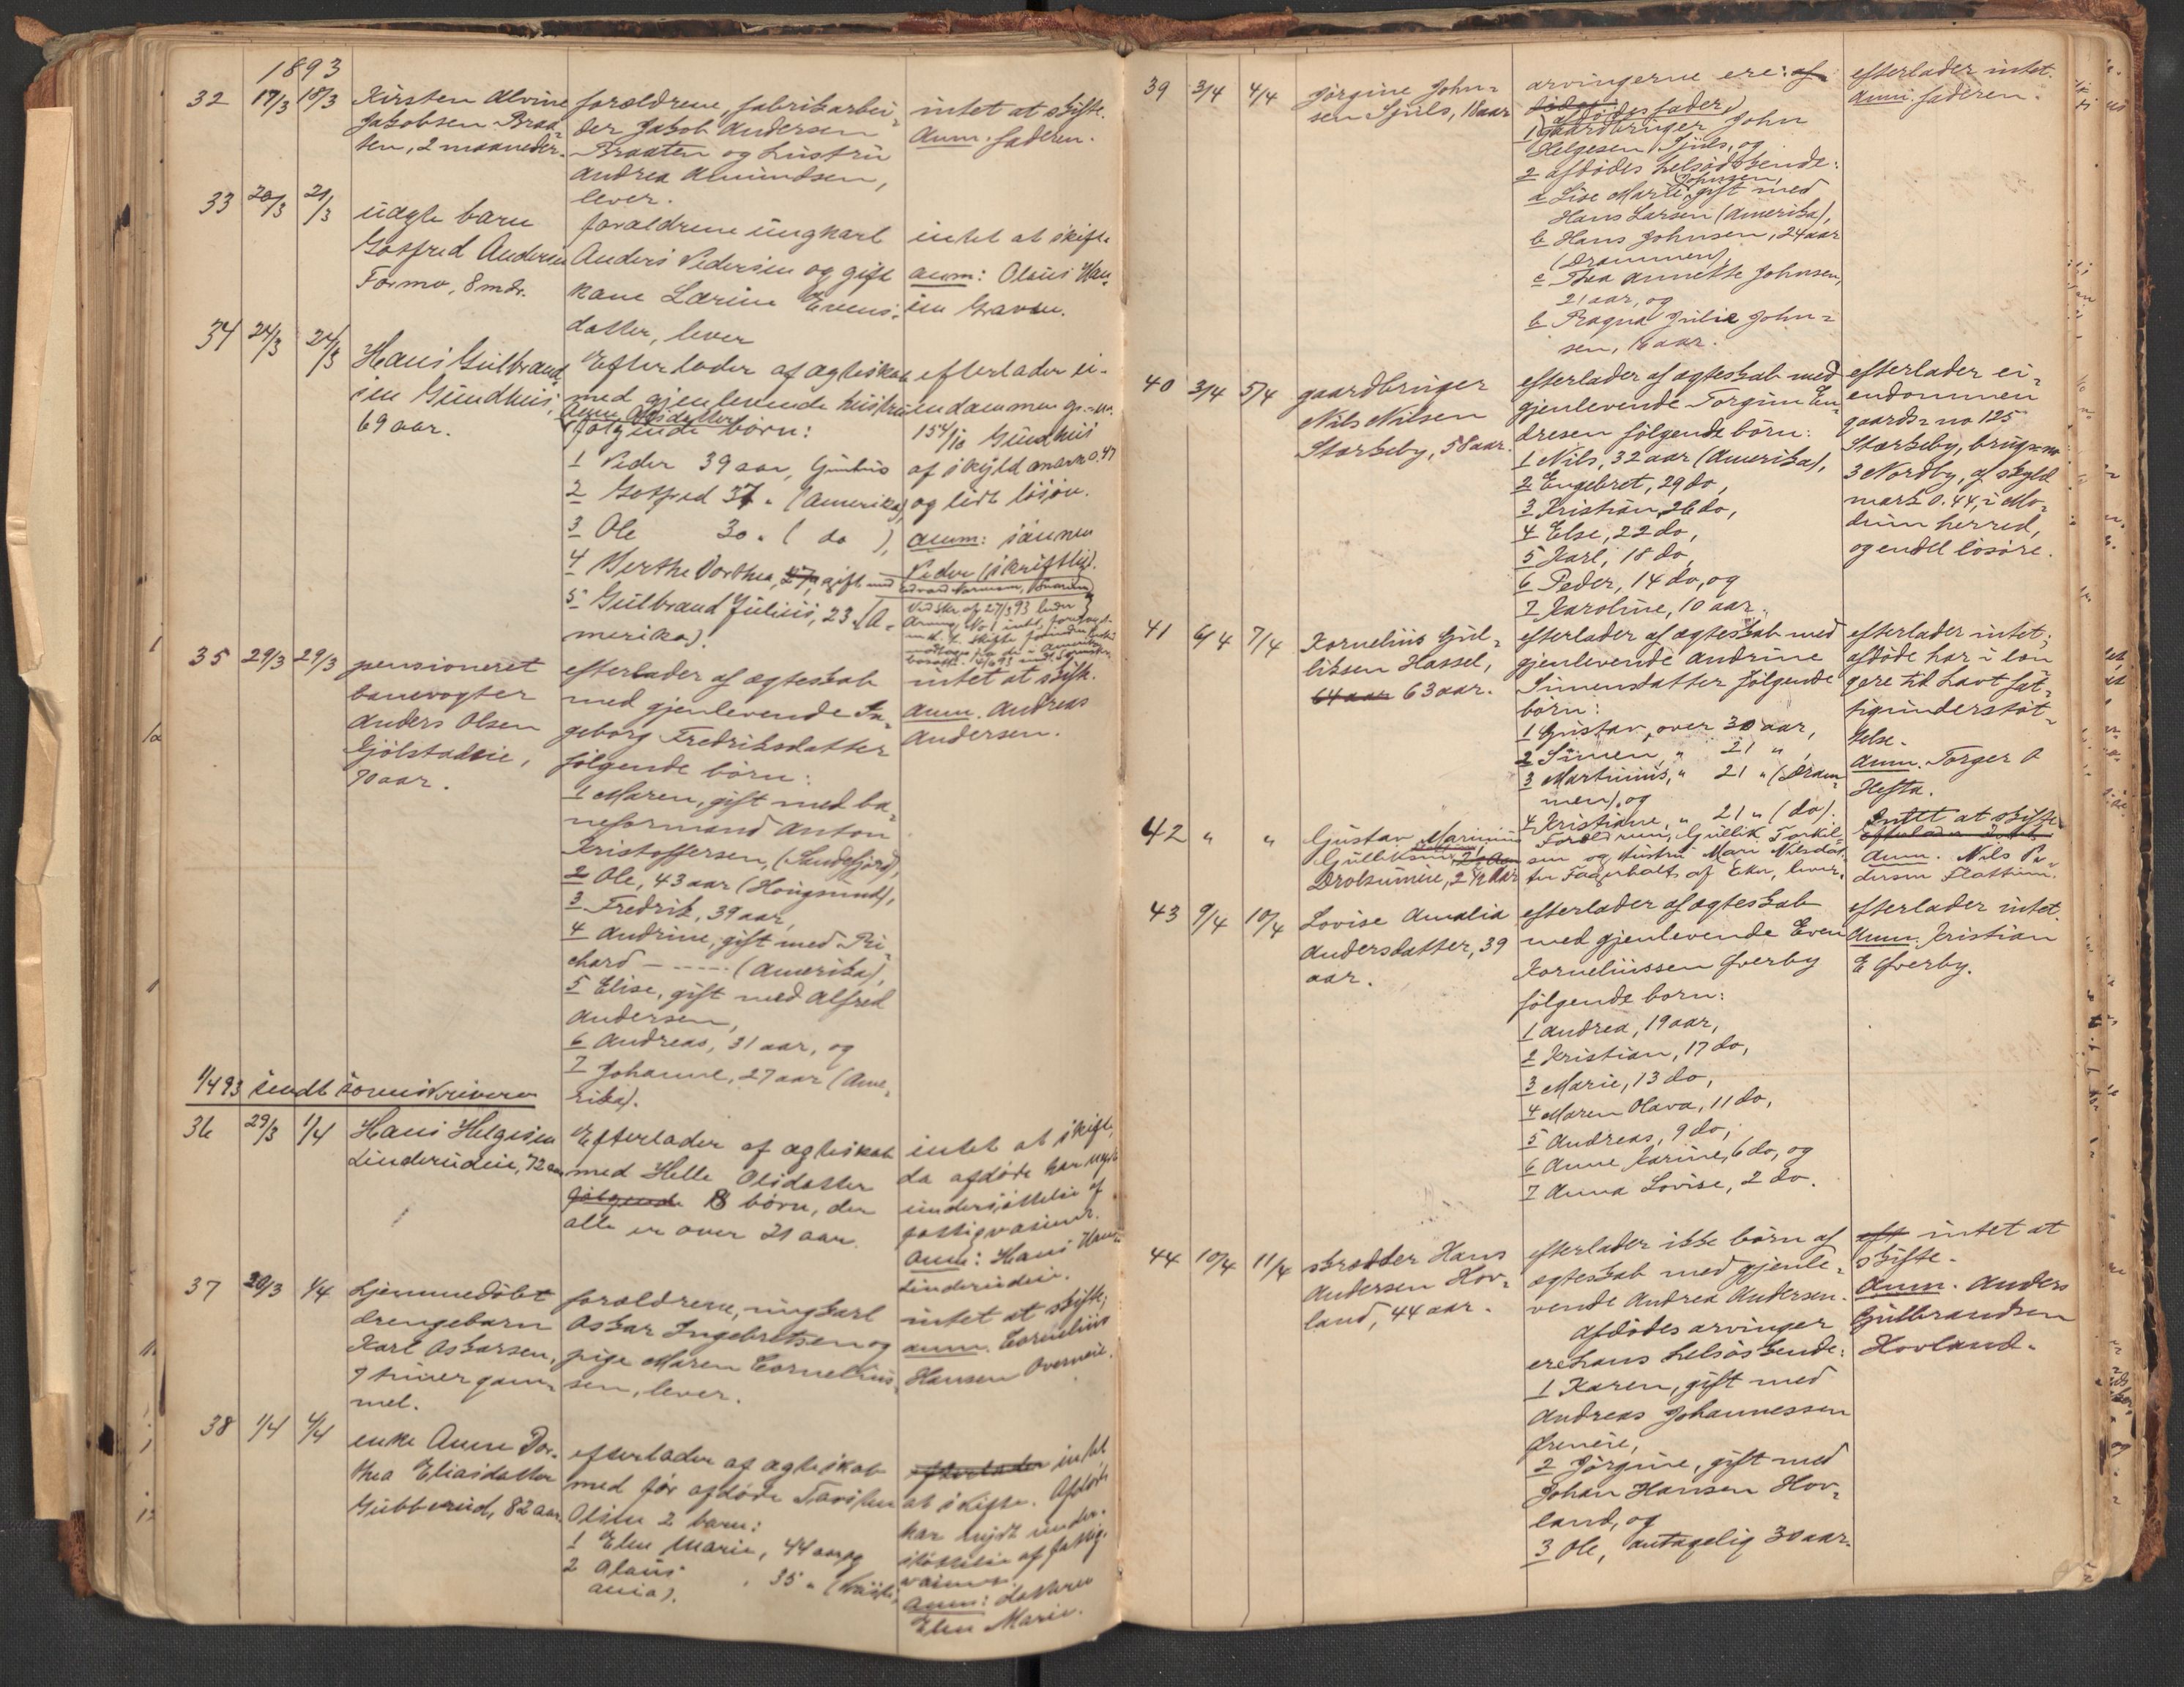 1893
32 17/3 18/3 Kirsten Alvine
Jakobsen Braa=
ten, 2 maaneder.
forældrene, fabrikarbei=
der Jakob Andersen
Braaten og hustru
Andrea Amundsen,
lever.
intet at skifte.
Anm. faderen.
33 20/3 21/3 uægte barn
Gotfred Andersen
Formo, 8 mdr.
forældrene ungkarl
Anders Pedersen og gift
kone Lærine Evens=
datter, lever
intet at skifte
anm: Olaus Han=
sen Graven.
34 24/3 24/3 Hans Gulbrand=
sen Gundhus,
69 aar.
Efterlader af ægteskab
med gjenlevende hustru
Anne Olsdatter
følgende børn:
1 Peder 39 aar, Gunhus
2 Gotfred 37 " (Amerika),
3 Ole 30 " ( do ),
4 Berthe Dorthea, 27, gift med
5 Gulbrand Julius, 23 " (A=
merika).
efterlader ei-
endommen gr. no.
154/10 Gundhus
af skyld mark 0.47
og lidt løsøre.
anm: sønnen
Peder (skriftlig).
35 29/3 29/3 pensioneret
banevogter
Anders Olsen
Gjölstadeie,
70 aar.
efterlader af ægteskab
med gjenlevende In=
geborg Fredriksdatter
følgende børn:
1 Maren, gift med ba=
neformand Anton
Kristoffersen, (Sandefjord),
2 Ole, 43 aar (Hougsund),
3 Fredrik, 39 aar,
4 Andrine, gift med Ri=
chard — ----- (Amerika),
5 Elise, gift med Alfred
Andersen,
6 Andreas, 31 aar, og
7 Johanne, 27 aar (Ame=
rika).
intet at skifte.
Anm. Andreas
Andersen.
1/4 93 sendt sorenskriveren
36 29/3 1/4 Hans Helgesen
Linderudeie, 72 aar
Efterlader af ægteskab
med Helle Olsdatter
følgende 8 børn, der
alle er over 21 aar.
intet at skifte,
da afdøde har nydt
understøttelse af
fattigvæsenet.
Anm: Hans Hansen
Linderudeie.
37 20/3 1/4 hjemmedöbt
drengebarn
Karl Oskarsen,
9 timer gam=
mel.
forældrene, ungkarl
Oskar Ingebretsen og
pige Maren Cornelius=
sen, lever.
intet at skifte;
anm. Cornelius
Hansen Overneie.
38 1/4 4/4 enke Anne Dor-
thea Eliasdatter
Gubberud, 82 aar.
efterlader af ægteskab
med før afdøde Torsten
Olsen 2 børn:
1 Elen Marie, 44 aar og
2 Olaus " 35 "
efterlader intet
at skifte. Afdøde
har nydt under-
støttelse af fattig-
væsenet.
Anm: datteren
Elen Marie.
39 3/4 4/4 Jørgine John=
sen Sjuls, 18 aar
arvingerne ere: af=
afdødes fader
1 gaardbruger John
Helgesen Sjuls, og
2 afdødes helsødskende:
a Lise Marie Johnsen, gift med
Hans Larsen (Amerika),
b Hans Johnsen, 24 aar
(Drammen),
c Thea Annette Johnsen,
21 aar, og
b Ragna Julie John=
sen, 16 aar.
efterlader intet.
Anm. faderen.
40 3/4 5/4 gaardbruger
Nils Nilsen
Stærkeby, 58 aar.
efterlader af ægteskab med
gjenlevende Torgun En=
dresen følgende börn:
1 Nils, 32 aar (Amerika),
2 Engebret, 29 do,
3 Kristian, 26 do,
4 Else, 22 do,
5 Karl, 18 do,
6 Peder, 14 do, og
7 Karoline, 10 aar.
efterlader ei=
endommen
gaards=no 125
Stærkeby, brugs=no
3 Nordby, af skyld
mark 0.44, i Mo=
dum herred,
og endel lösöre.
41 6/4 7/4 Kornelius Gul=
liksen Hassel,
64 aar 63 aar.
efterlader af ægteskab med
gjenlevende Andrine
Simensdatter følgende
börn:
1 Gustav, over 30 aar,
2 Simen, " 21 " ,
3 Martinius, " 21 " (Dram=
men), og
4 Kristiane, " 21 " (do).
efterlader intet;
afdøde har i læn=
gere tid havt fat=
tigunderstøt=
telse.
Anm. Torger A
Hefta.
42 " " Gustav Marinius
Gulliksen, 2 aar
Drolsumeie, 2 1/2 Aar
Forældrene, Gullik Torkil=
sen og Hustru Mari Nilsdat=
ter Fagerholt af Eker, lever.
Intet at skifte
efterlader intet
Anm. Nils Pe=
dersen Flattum.
43 9/4 10/4 Lovise Amalia
Andersdatter, 39
aar.
efterlader af ægteskab
med gjenlevende Even
Korneliussen Øverby
følgende born:
1 Andrea, 19 aar,
2 Kristian, 17 do,
3 Marie, 13 do,
4 Maren Olava, 11 do,
5 Andreas, 9 do,
6 Anne Karine, 6 do, og
7 Anna Lovise, 2 do.
efterlader intet.
Anm. Kristian
E Øverby.
44 10/4 11/4 skrædder Hans
Andersen Hov=
land, 44 aar.
efterlader ikke börn af
ægteskab med gjenle=
vende Andrea Andersen.
Afdødes arvinger
ere hans helsøskende:
1 Karen, gift med
Andreas Johannessen
Øreneie,
2 Jörgine, gift med
Johan Hansen Hov=
land, og
3 Ole, antagelig 30 aar.
eft intet at
skifte.
Anm. Anders
Gulbrandsen
Hovland.